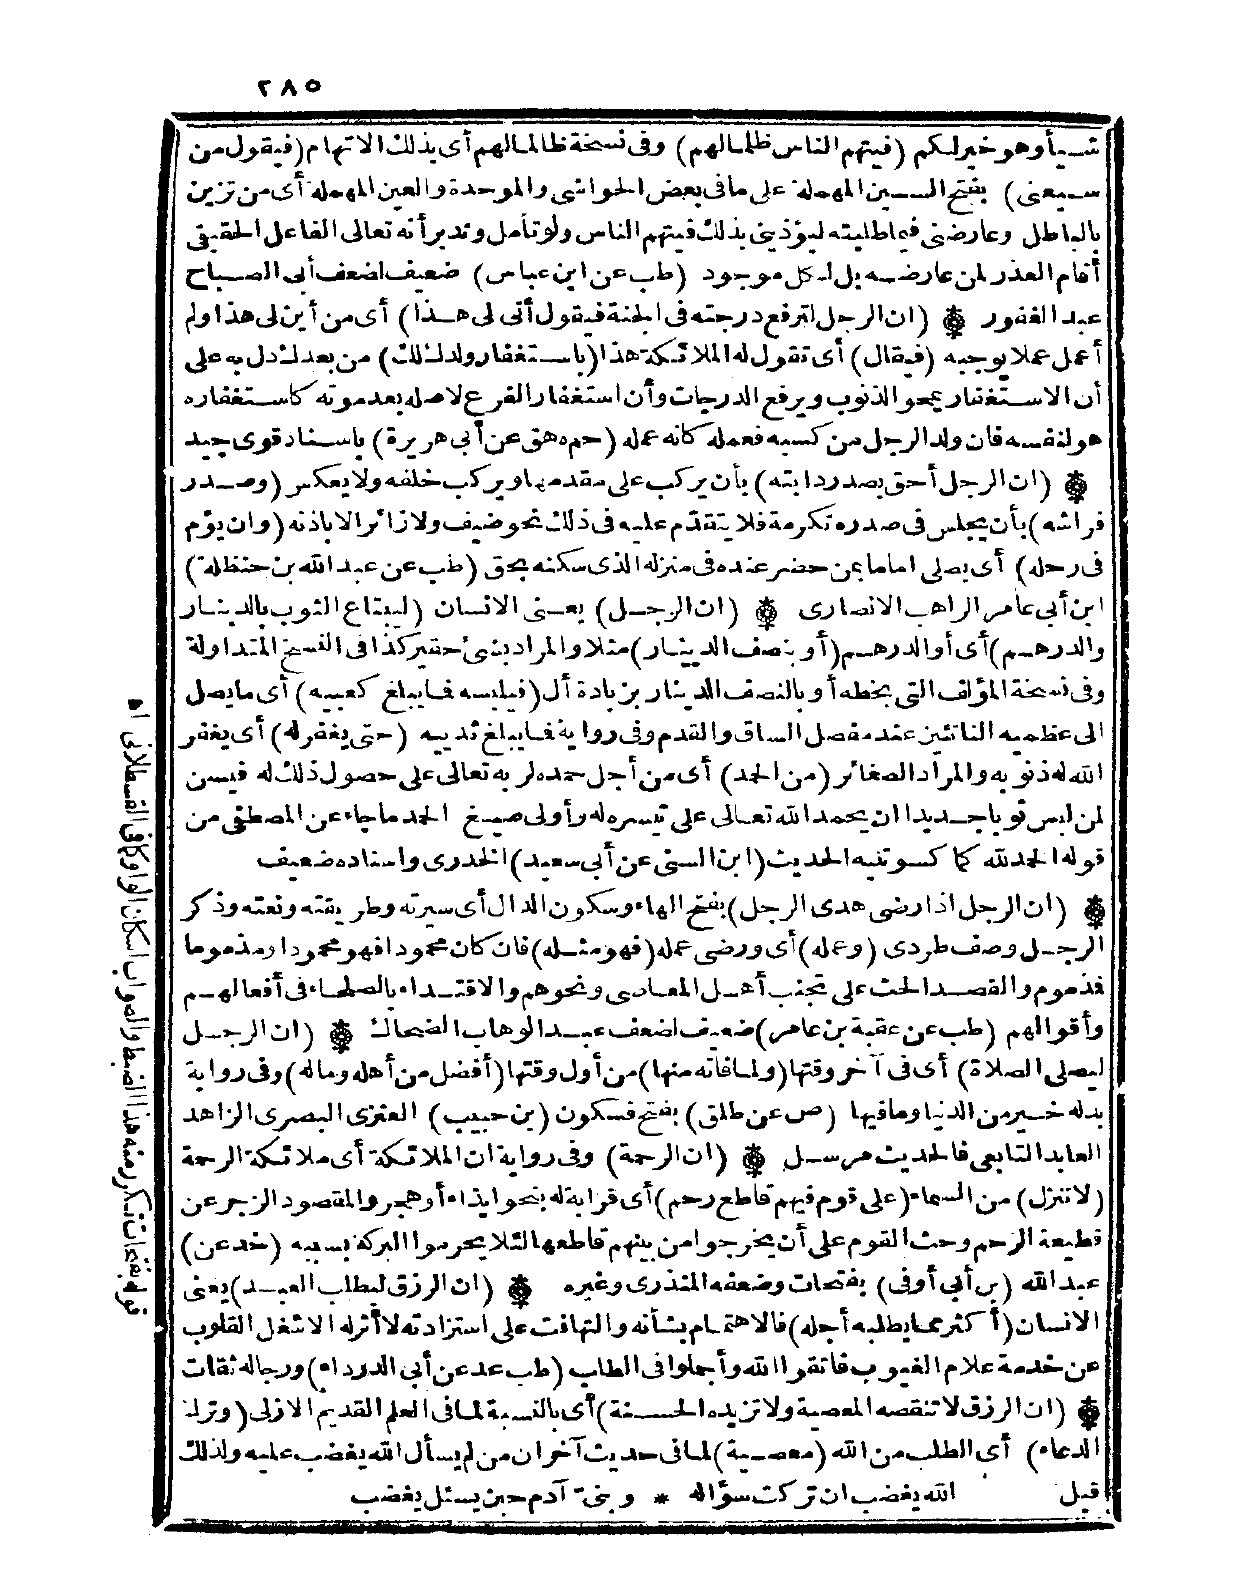 ٢٨٥
شيأ وهو خير لكم (فيتهم الناس ظلما لهم) وفى نسخة ظالما لهم أى بذلك الاتهام (فيقول من
سبعنى) بفتح السين المهملة على ما فى بعض الحواشى والموحدة والعين المهملة أى من تزين
بالباطل وعارضنى فيما طلبته ليؤذينى بذلك فيتهم الناس ولو تأمل وتدبر أنه تعالى الفاعل الحقيقى
أقام العذر لمن عارضه بل لكل موجود (طب عن ابن عباس) ضعيف لضعف أبى الصباح
عبد الغفور ❁ (ان الرجل لترفع درجته فى الجنة فيقول أنى لى هذا) أى من أين لى هذا ولم
أعمل عملا يوجبه (فيقال) أى تقول له الملائكة هذا (باستغفار ولدك لك) من بعدك دل به على
أن الاستغفار يمحو الذنوب ويرفع الدرجات وأن استغفار الفرع لاصله بعد موته كاستغفاره
هو لنفسه فان ولد الرجل من كسبه فعمله كأنه عمله (حم ه هق عن أبى هريرة) باسناد قوى جيد
❁ (ان الرجل أحق بصدر دابته) بأن يركب على مقدمها ويركب خلفه ولا يعكس (وصدر
فراشه) بأن يجلس فى صدره تكرمة فلا يتقدم عليه فى ذلك نحو ضيف ولا زائر الا باذنه (وان يؤم
فى رحله) أى يصلى اماما بمن حضر عنده فى منزله الذى سكنه بحق (طب عن عبد الله بن حنظلة)
ابن أبى عامر الراهب الانصارى ❁ (ان الرجل) يعنى الانسان (ليبتاع الثوب بالدينار
والدرهم) أى أو الدرهم (أو بنصف الدينار) مثلا والمراد بشئ حقير كذا فى النسخ المتداولة
وفى نسخة المؤلف التى بخطه أو بالنصف الدينار بزيادة أل (فيلبسه فما يبلغ كعبيه) أى ما يصل
الى عظميه الناتئين عند مفصل الساق والقدم وفى رواية فما يبلغ ثدييه (حتى يغفر له) أى يغفر
الله له ذنوبه والمراد الصغائر (من الحمد) أى من أجل حمده لربه تعالى على حصول ذلك له فيسن
لمن لبس ثوبا جديدا ان يحمد الله تعالى على تيسره له وأولى صيغ الحمد ما جاء عن المصطفى من
قوله الحمد لله كما كسوتنيه الحديث (ابن السنى عن أبى سعيد) الخدرى واسناده ضعيف
❁ (ان الرجل اذا رضى هدى الرجل) بفتح الهاء وسكون الدال أى سيرته وطريقته ونعته وذكر
الرجل وصف طردى (وعمله) أى ورضى عمله (فهو مثله) فان كان محمودا فهو محمود او مذموما
فمذموم والقصد الحث على تجنب أهل المعاصى ونحوهم والاقتداء بالصلحاء فى أفعالهم
وأقوالهم (طب عن عقبة بن عامر) ضعيف لضعف عبد الوهاب الضحاك ❁ (ان الرجل
ليصلى الصلاة) أى فى آخر وقتها (ولما فاته منها) من أول وقتها (أفضل من أهله وماله) وفى رواية
بدله خير من الدنيا وما فيها (ص عن طلق) بفتح فسكون (بن حبيب) العنزى البصرى الزاهد
العابد التابعى فالحديث مرسل ❁ (ان الرحمة) وفى رواية ان الملائكة أى ملائكة الرحمة
(لا تنزل) من السماء (على قوم فيهم قاطع رحم) أى قرابة له بنحو ايذاء أو هجر والمقصود الزجر عن
قطيعة الرحم وحث القوم على أن يخرجوا من بينهم قاطعها لئلا يحرموا البركة بسببه (خد عن)
عبد الله (بن أبى أوفى) بفتحات وضعفه المنذرى وغيره ❁ (ان الرزق ليطلب العبد) يعنى
الانسان (أكثر مما يطلبه أجله) فالاهتمام بشأنه والتهافت على استزادته لا أثر له الا شغل القلوب
عن خدمة علام الغيوب فاتقوا الله وأجملوا فى الطلب (طب عد عن أبى الدرداء) ورجاله ثقات
❁ (ان الرزق لا تنقصه المعصية ولا تزيده الحسنة) أى بالنسبة لما فى العلم القديم الازلى (وترك
الدعاء) أى الطلب من الله (معصية) لما فى حديث آخر ان من لم يسأل الله يغضب عليه ولذلك
قيل الله يغضب ان تركت سؤاله * وبنىّ آدم حين يسئل يغضب
قوله بفتحات تكرر منه هذا الضبط والصواب اسكان الواو كما فى القسطلانى اه